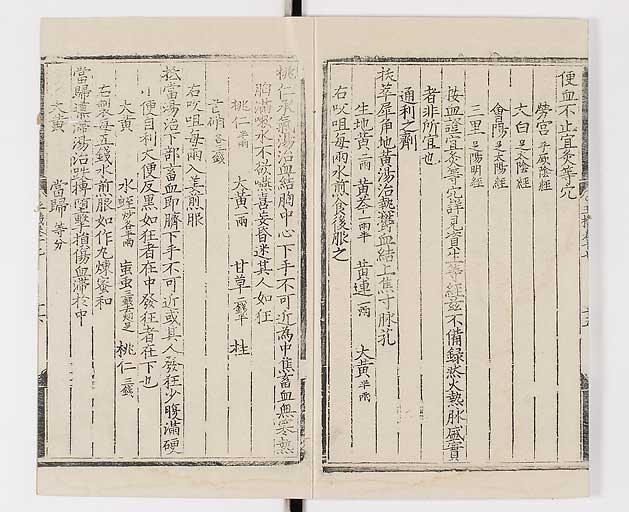 便血不止宜灸等穴
勞宮 手厥陰經
大白 足太陰經
會陽 足太陽經
三里 足陽明經
按血證宜灸等穴詳見資生等經茲不備録然火熱脉盛實
者非所宜也
通利之劑
扶萃犀角地黄湯治熱鬱血結上焦寸脉芤
生地黄 二兩 黄芩 一兩半 黄連 一兩 大黄 半兩
右㕮咀每兩水煎食後服之
桃仁承氣湯治血結胸中心下手不可近為中焦畜血無寒熱
胸滿嗽水不欲嚥喜妄昏迷其人如狂
桃仁 半兩 大黄 一兩 甘草 二錢半 桂
芒硝 各三錢
右㕮咀每兩入姜煎服
抵當湯治下部畜血即臍下手不可近或其人發狂少腹滿硬
小便自利大便反黒如狂者在中發狂者在下也
大黄 水蛭 炒各半兩 䖟蟲 三錢去翅足 桃仁 三錢
右製每五錢水煎服如作丸煉蜜和
當歸導滯湯治跌撲墮擊損傷血滯於中
大黄 當歸 等分